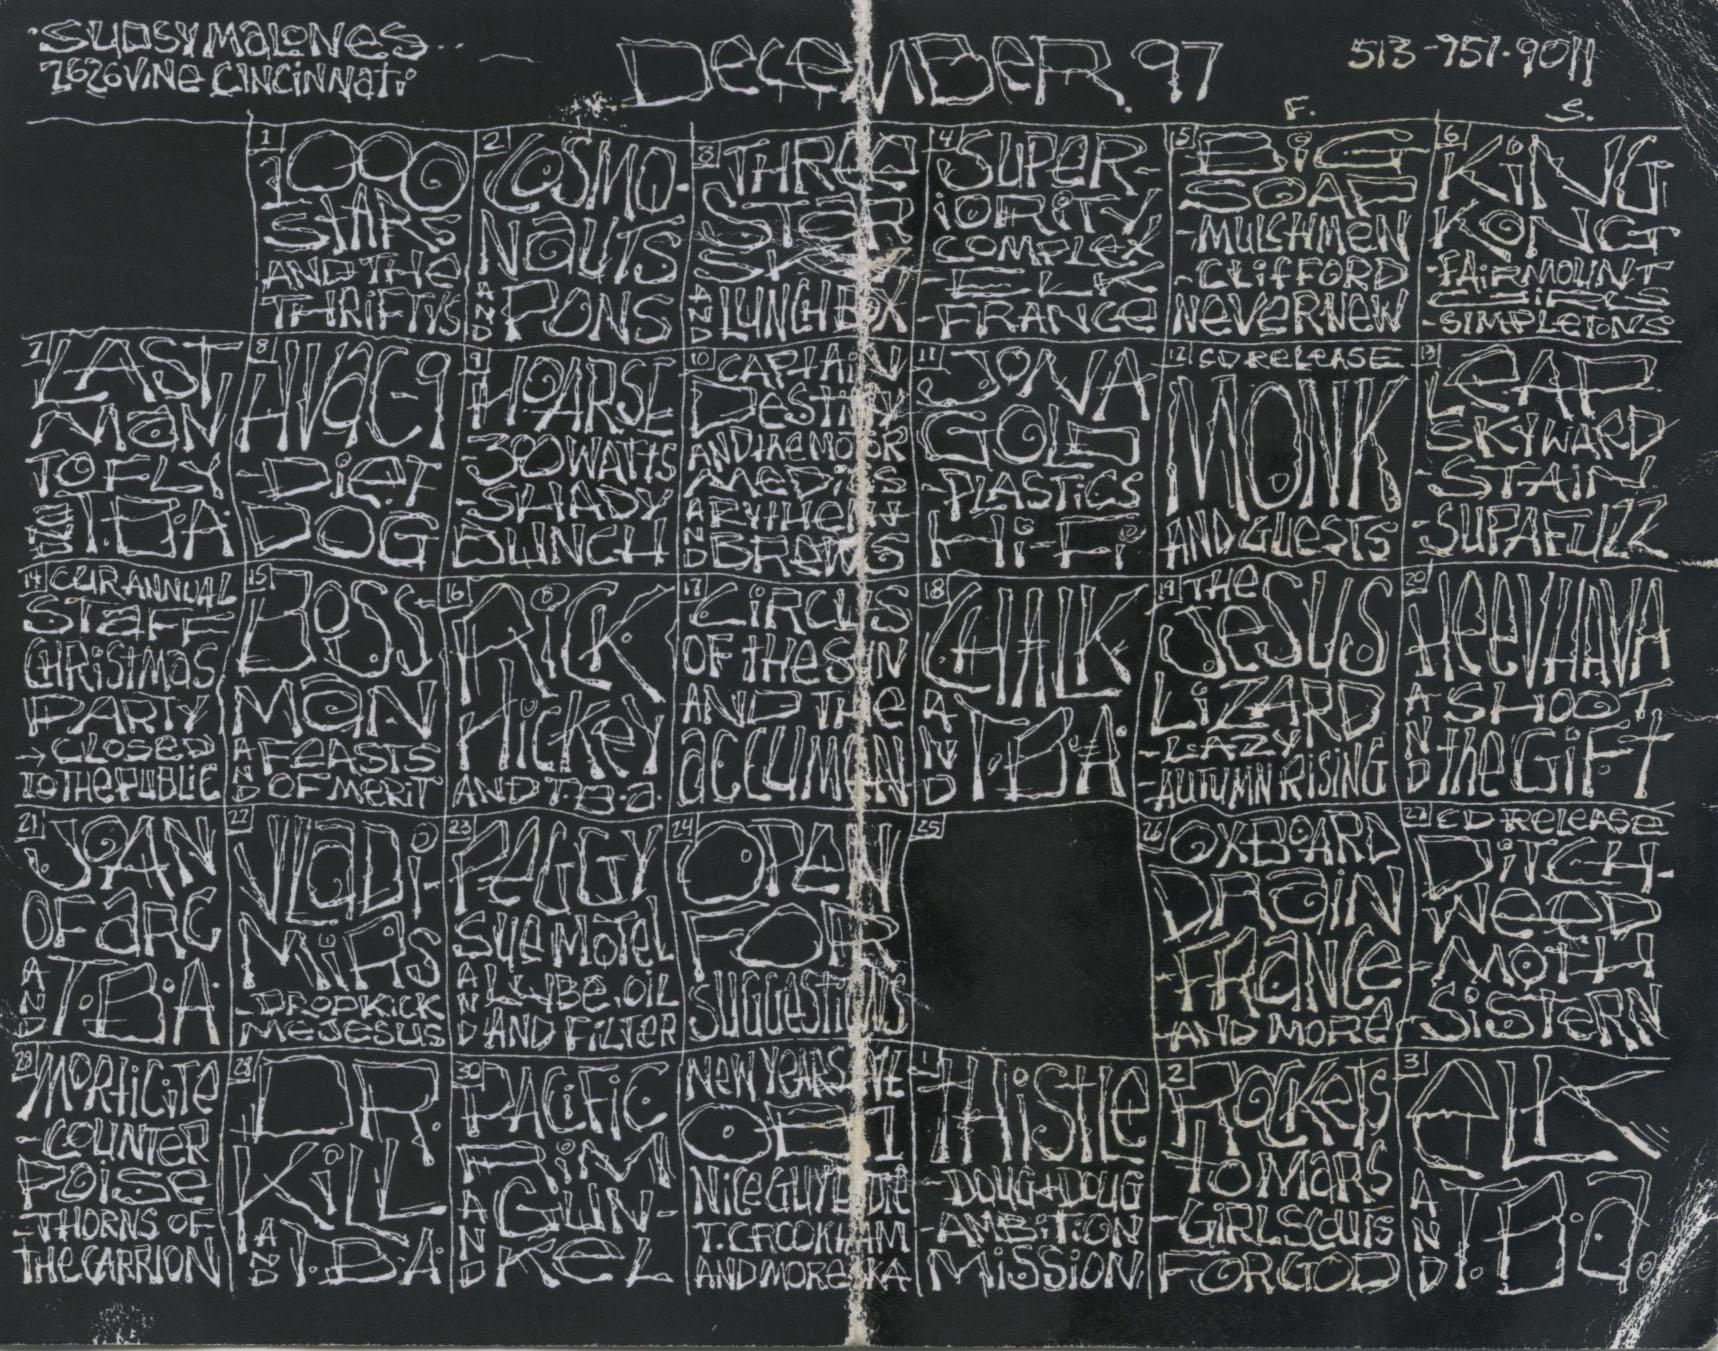 SUDSY MALONES...
2626 VINE CINCINNATI
DECEMBER. 97
513-751-9011
F.
S.
1
1000
STARS
AND THE
THRIFTYS
2
COSMO-
NAUTS
AND
PONS
3
THREE
STAR
SKY
AND
LUNCHBOX
4
SUPER-
IORITY
COMPLEX
-ELK
-FRANCE
5
BIG
SOAP
-MULCHMEN
-CLIFFORD
NEVERNEW
6
KING
KONG
-FAIRMOUNT
GIRLS
-SIMPLETONS
7
LAST
MAN
TO FLY
AND
T.B.A.
8
HVAC9
-DIET
DOG
9
HOARSE
-300 WATTS
-SHADY
BUNCH
10
CAPTAIN
DESTINY
AND THE MOTOR
MEDICS
AND
BREWS
11
JONA
GOLD
-PLASTICS
HI-FI
12 CD RELEASE
MONK
AND GUESTS
13
LEAP
SKYWARD
-STAIN
-SUPAFUZZ
14 OUR ANNUAL
STAFF
CHRISTMAS
PARTY
→CLOSED
TO THE PUBLIC
15
BOSS
MAN
AND
FEASTS
OF MERIT
16
RICK
HICKEY
AND T.B.A.
17
CIRCUS
OF THE SUN
AND THE
ACCUMEN
18
CHALK
AND
T.B.A.
19 THE
JESUS
LIZARD
-LAZY
-AUTUMN RISING
20
HEEVAHAVA
AND
SHOOT
THE GIFT
21
JOAN
OF ARC
AND
T.B.A.
22
VLADI-
MIRS
-DROPKICK
ME JESUS
23
PEGGY
SUE MOTEL
AND
LUBE, OIL
AND FILTER
24
OPEN
FOR
SUGGESTIONS
25
26
OXBOARD
DRAIN
-FRANCE-
AND MORE
27 CD RELEASE
DITCH-
WEED
-MOTH
-SISTERN
28
MORTICITE
-COUNTER
POISE
-THORNS OF
THE CARRION
29
DR.
KILL
AND
T.B.A.
30
PACIFIC
RIM
AND
GUN-
KEL
NEW YEARS EVE
OE1
T. CROOKHAM
AND MORE SKA
1
THISTLE
-DOUG+DOUG
-AMBITION
MISSION
2
ROCKETS
TO MARS
-GIRL SCOUTS
FOR GOD
3
ELK
AND
T.B.A.